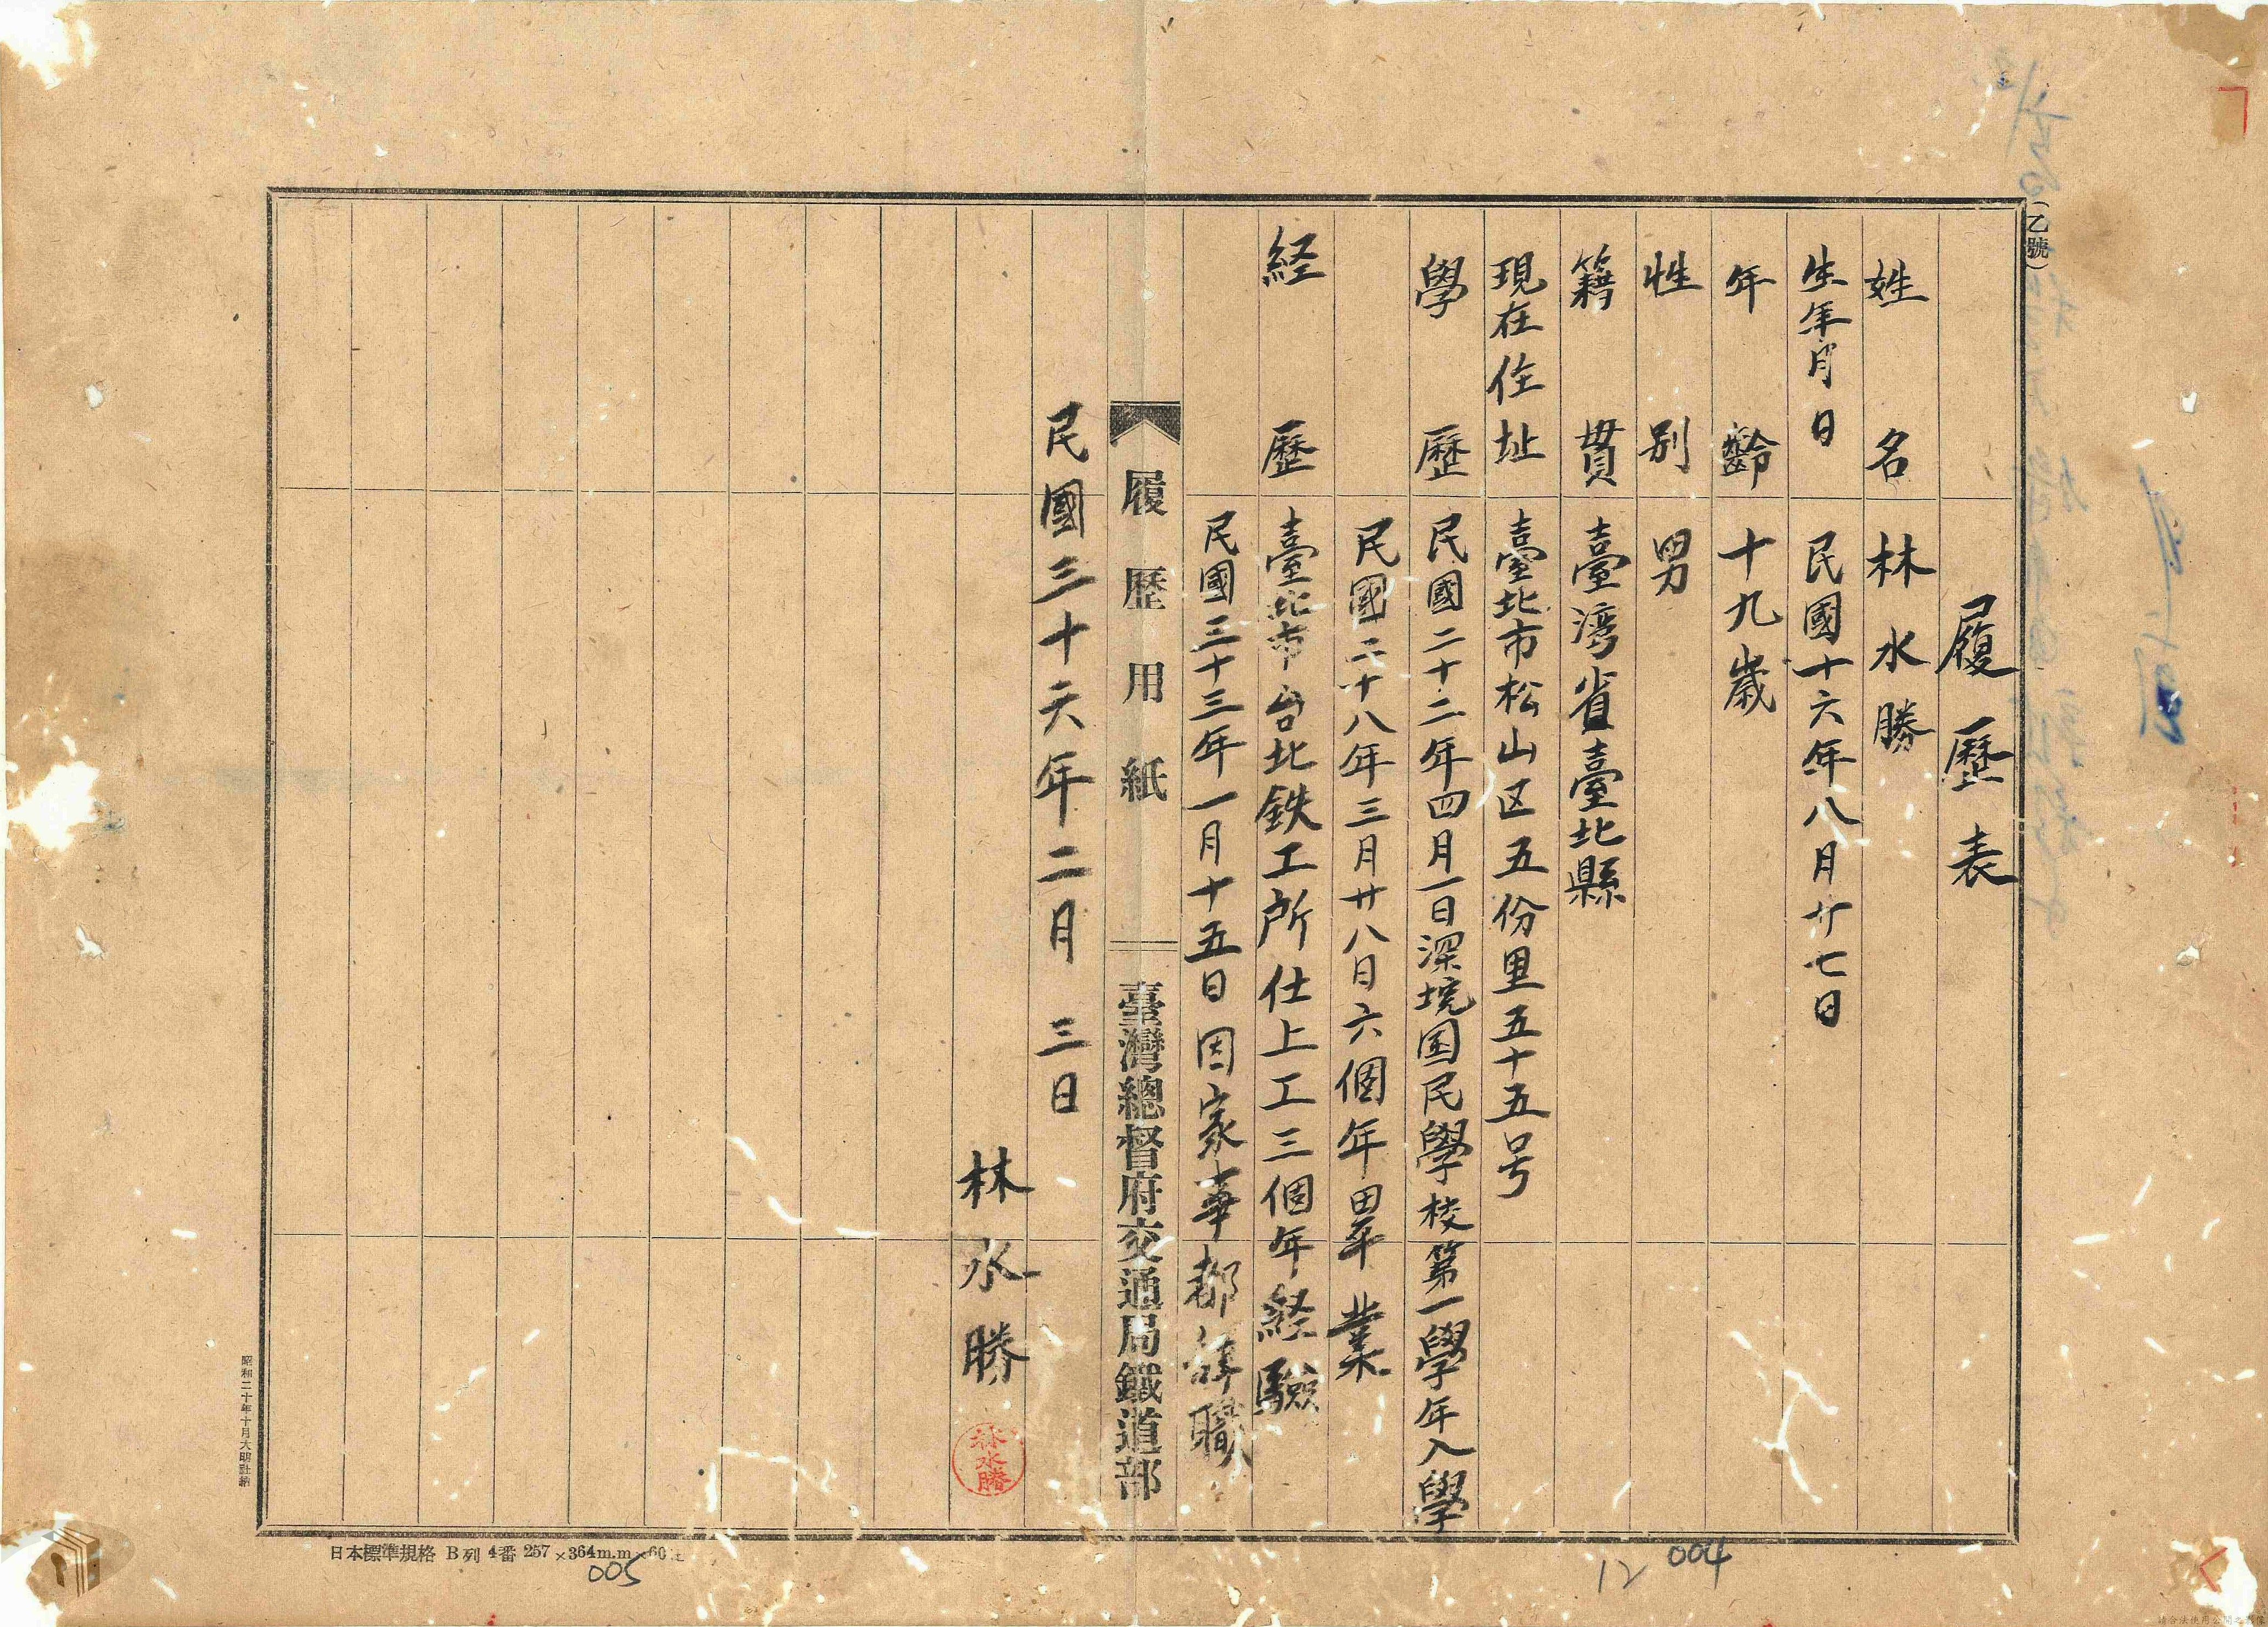 (乙號)
履歷表
姓名 林水勝
生年月日 民國十六年八月廿七日
年齡 十九歲
性別 男
籍貫 臺湾省臺北縣
現在住址 臺北市松山区五份里五十五号
學歷 民國二十二年四月一日深坑国民學校第一學年入學
民國二十八年三月廿八日六個年畢業
経歷 臺北市台北鉄工所仕上工三個年経驗
民國三十三年一月十五日因家事都辞職
履歷用紙 臺灣總督府交通局鐵道部
民國三十六年二月三日
林水勝
林水勝
昭和二十年十月大明社納
日本標準規格 B列 4番 257×364m.m×60
005
12 004
請合法使用公開之影像